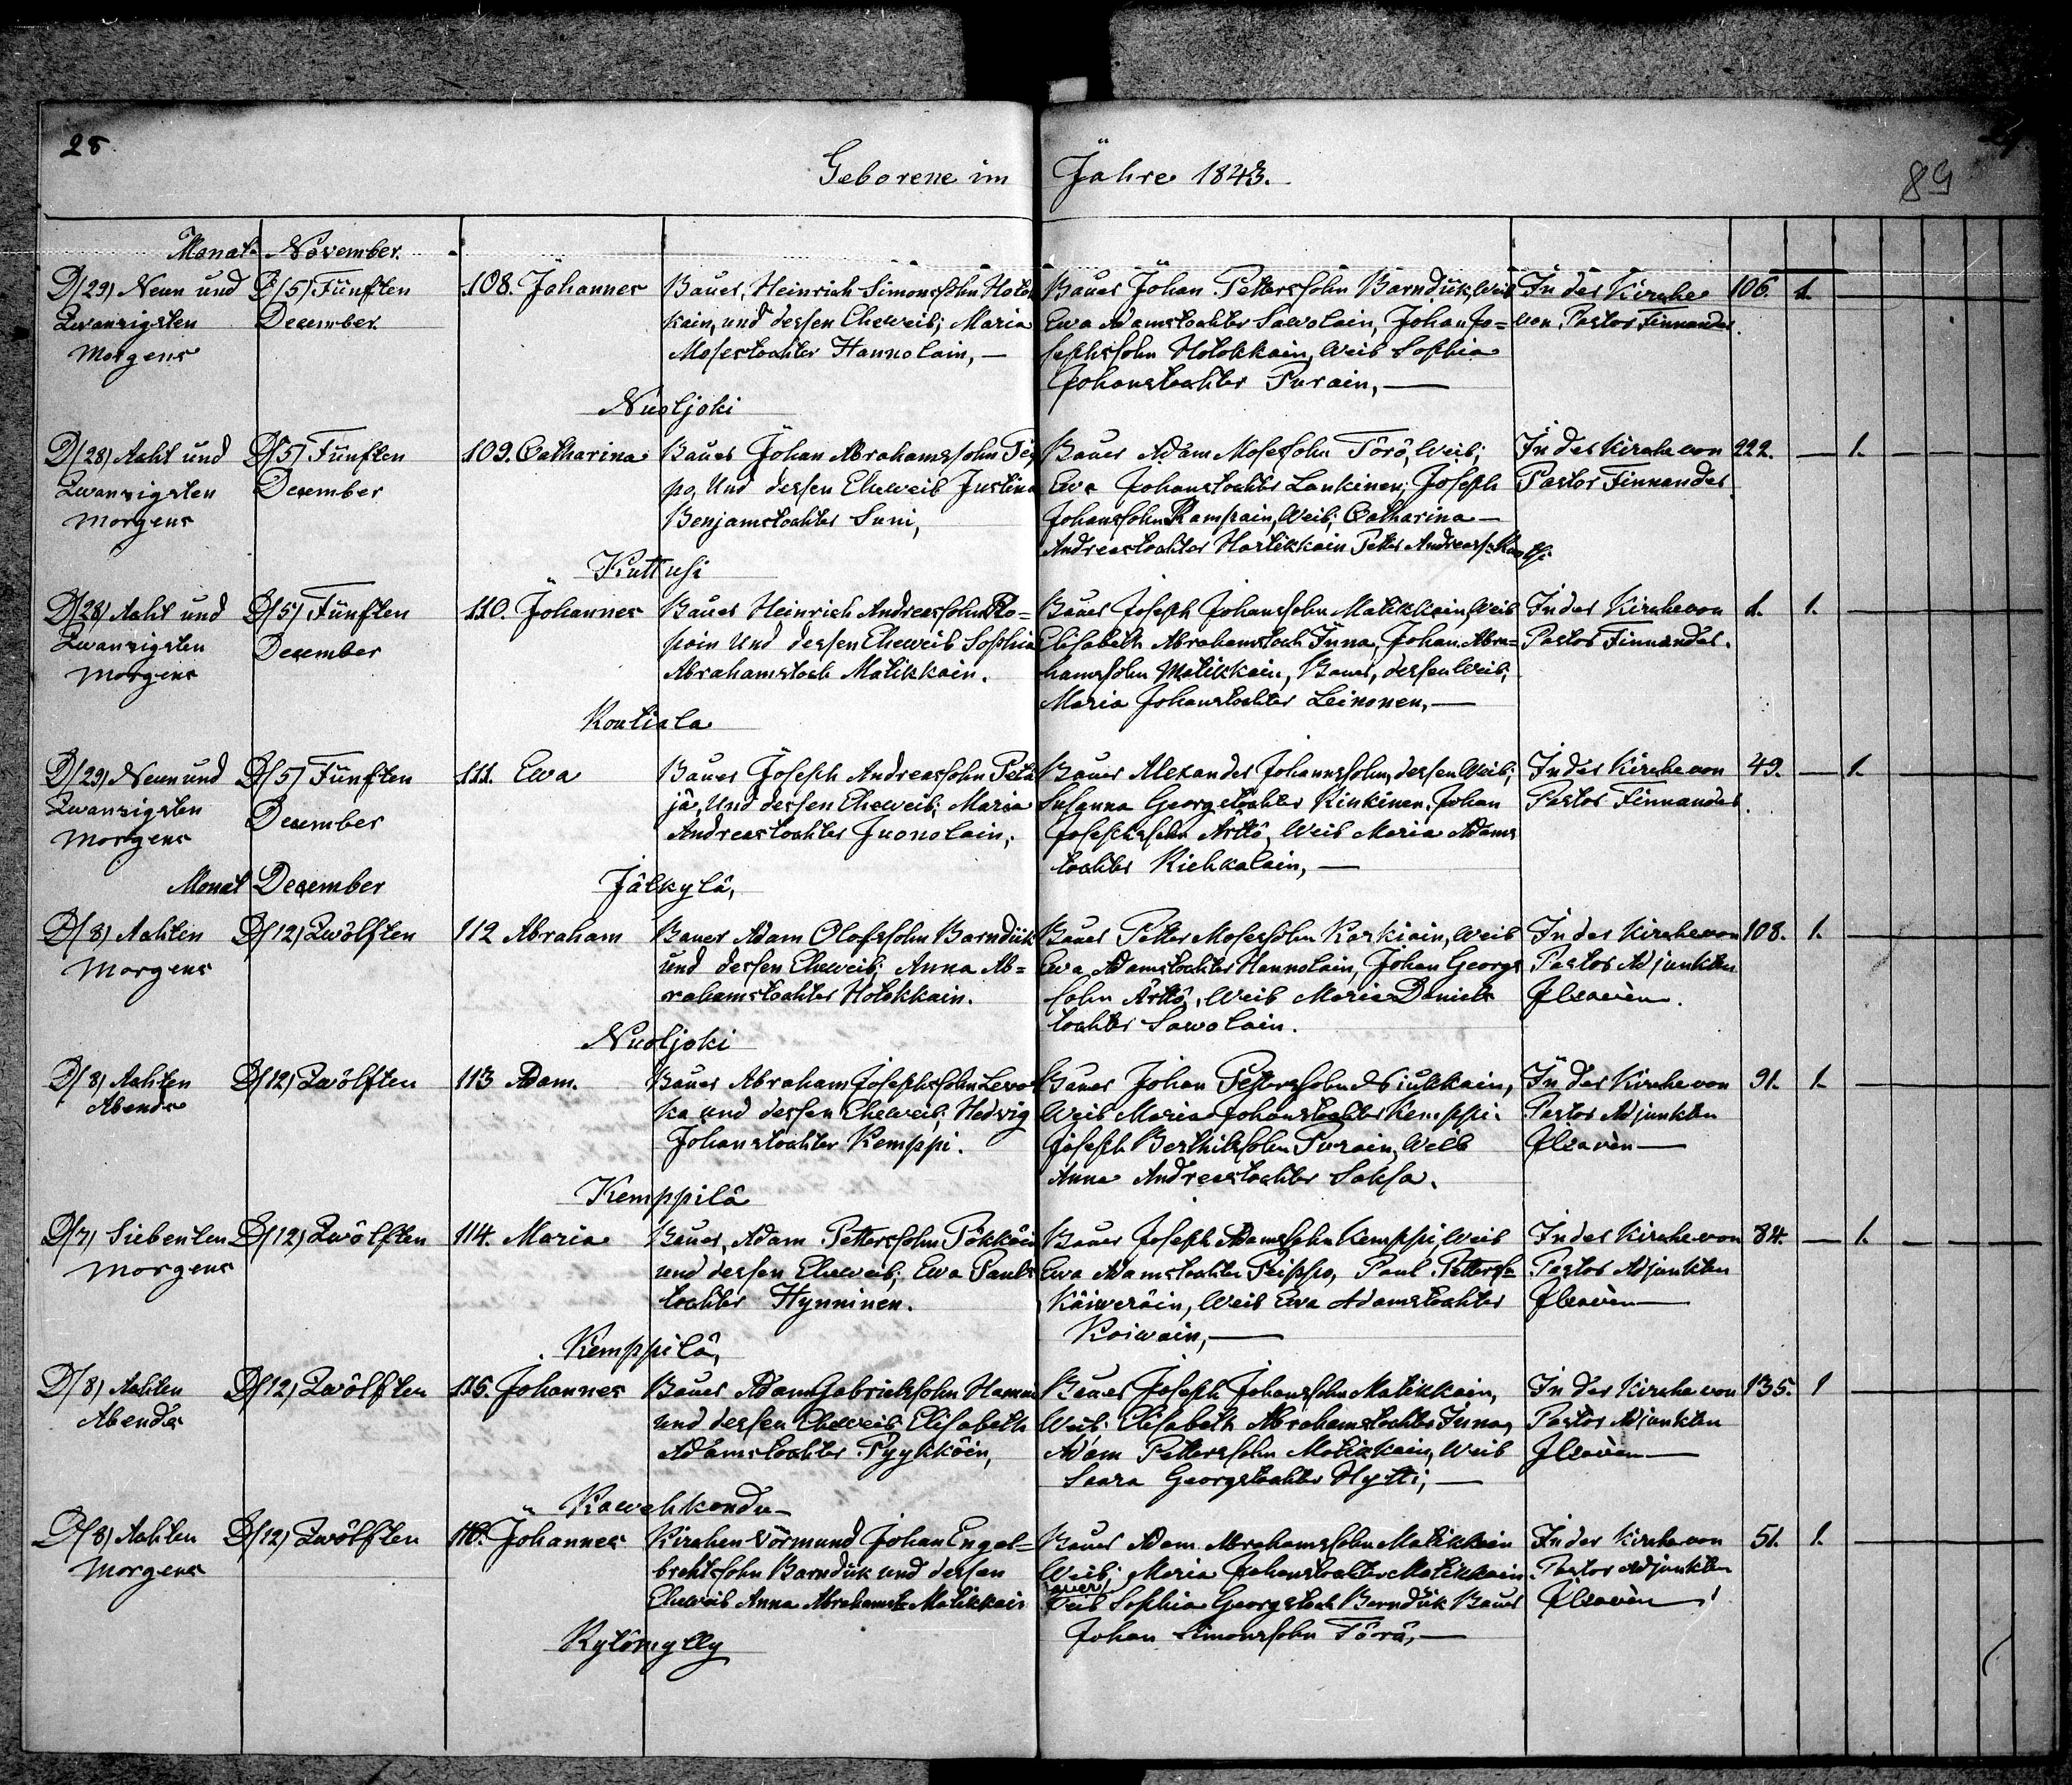 28
Geborene im Jahre 1843.
89
Monat November.
D/29) Neun und
Zwanzigsten
Morgens
D/5) Fünften
December.
108. Johannes
Bauer, Heinrich Simonssohn Hotok
kain, und dessen Eheweib; Maria
Mosestochter Hannolain, —
Bauer Johan Pettersohn Barndük, Weib
Ewa Adamstochter Sawolain, Johan Jo=
sephssohn Hotokkain, Weib Sophia
Johanstochter Purain, —
In der Kirche
von, Pastor Finnander.
106. 1.
Nuoljoki
D/28) Acht und
Zwanzigsten
Morgens
D/5) Fünften
December
109. Catharina
Bauer Johan Abrahamssohn
po, Und dessen Eheweib Justina
Benjamstochter Suni,
Bauer Adam Mosessohn Törö, Weib;
Ewa Johanstochter Lankinen; Joseph
Johansohn Rampain, Weib; Catharina —
Andreastochter Hartikkain Petter
In der Kirche von
Pastor Finnander
222. — 1.
Kuttusi
D/28) Acht und
Zwanzigsten
Morgens
D/5) Fünften
December
110. Johannes
Bauer Heinrich Andreassohn Ro=
poin Und dessen Eheweib Sophia
Abrahamstoch Matikkain.
Bauer Joseph Johanssohn Matikkain, Weib
Elisabeth Abrahamstoch Inna, Johan Abra=
hamssohn Matikkain, Bauer, dessen Weib,
Maria Johanstochter Leinonen, —
In der Kirche von
Pastor Finnander.
1. 1.
Kontiala
D/29) Neun und
Zwanzigsten
Morgens
D/5) Fünften
December
111. Ewa
Bauer Joseph Andreassohn Petä
jä, Und dessen Eheweib; Maria
Andreastochter Juonolain,
Bauer Alexander Johannssohn, dessen Weib;
Susanna Georgstochter Kinkinen, Johan
Josephssohn Ärtkö, Weib Maria Adams
tochter Kiehkalain, —
In der Kirche von
Pastor Finnander.
49. — 1.
Monat December
Jälkylä,
D/8) Achten
Morgens
D/12) Zwölften
112 Abraham
Bauer Adam Olofssohn Barndük
und dessen Eheweib; Anna Ab=
rahamstochter Hotokkain.
Bauer Petter Mosessohn Karkiain, Weib
Ewa Adamstochter Hannolain, Johan Georgs
sohn Ärtkö, Weib Maria Daniels
tochter Sawolain.
In der Kirche von
Pastor Adjunkten
108. 1.
Nuoljoki
D/8) Achten
Abends
D/12) Zwölften
113 Adam.
Bauer Abraham Josephssohn
ka, und dessen Eheweib; Hedwig
Johanstochter Kemppi.
Bauer Johan Petterssohn
Weib Maria Johanstochter Kemppi.
Joseph Berthilssohn Purain, Weib
Anna Andreastochter Saksa.
In der Kirche von
Pastor Adjunkten
91. 1.
Kemppilä
D/7) Siebenten
Morgens
D/12) Zwölften
114. Maria
Bauer, Adam Petterssohn Pökkäin
und dessen Eheweib; Ewa Pauls
tochter Hynninen.
Bauer Joseph Adamssohn Kemppi, Weib
Ewa Adamstochter Peippo, Paul Petters
Käiweräin, Weib Ewa Adamstochter
Koiwain, —
In der Kirche von
Pastor Adjunkten
84. — 1.
Kemppilä,
D/8) Achten
Abends
D/12) Zwölften
115. Johannes
Bauer Adam Gabrielssohn
und dessen Eheweib Elisabeth
Adamstochter Pyykköin,
Bauer Joseph Johanssohn Matikkain,
Weib. Elisabeth Abrahamstochter Inna,
Adam Petterssohn Matikkain, Weib
Saara Georgstochter Hytti, —
In der Kirche von
Pastor Adjunkten
135. 1
Kawehkondu
D/8) Achten
Morgens
D/12) Zwölften
116. Johannes
Kirchen Vormund Johan Engel=
brehtssohn Barndük und dessen
Eheweib Anna Abrahamst Matikkain
Bauer Adam Abrahamssohn Matikkain
Weib; Maria Johanstochter Matikkain
Weib Sophia Georgstoch Berndük Bauer
Johan Simonssohn Törö, —
In der Kirche von
Pastor Adjunkten
51. 1.
Kytömylly